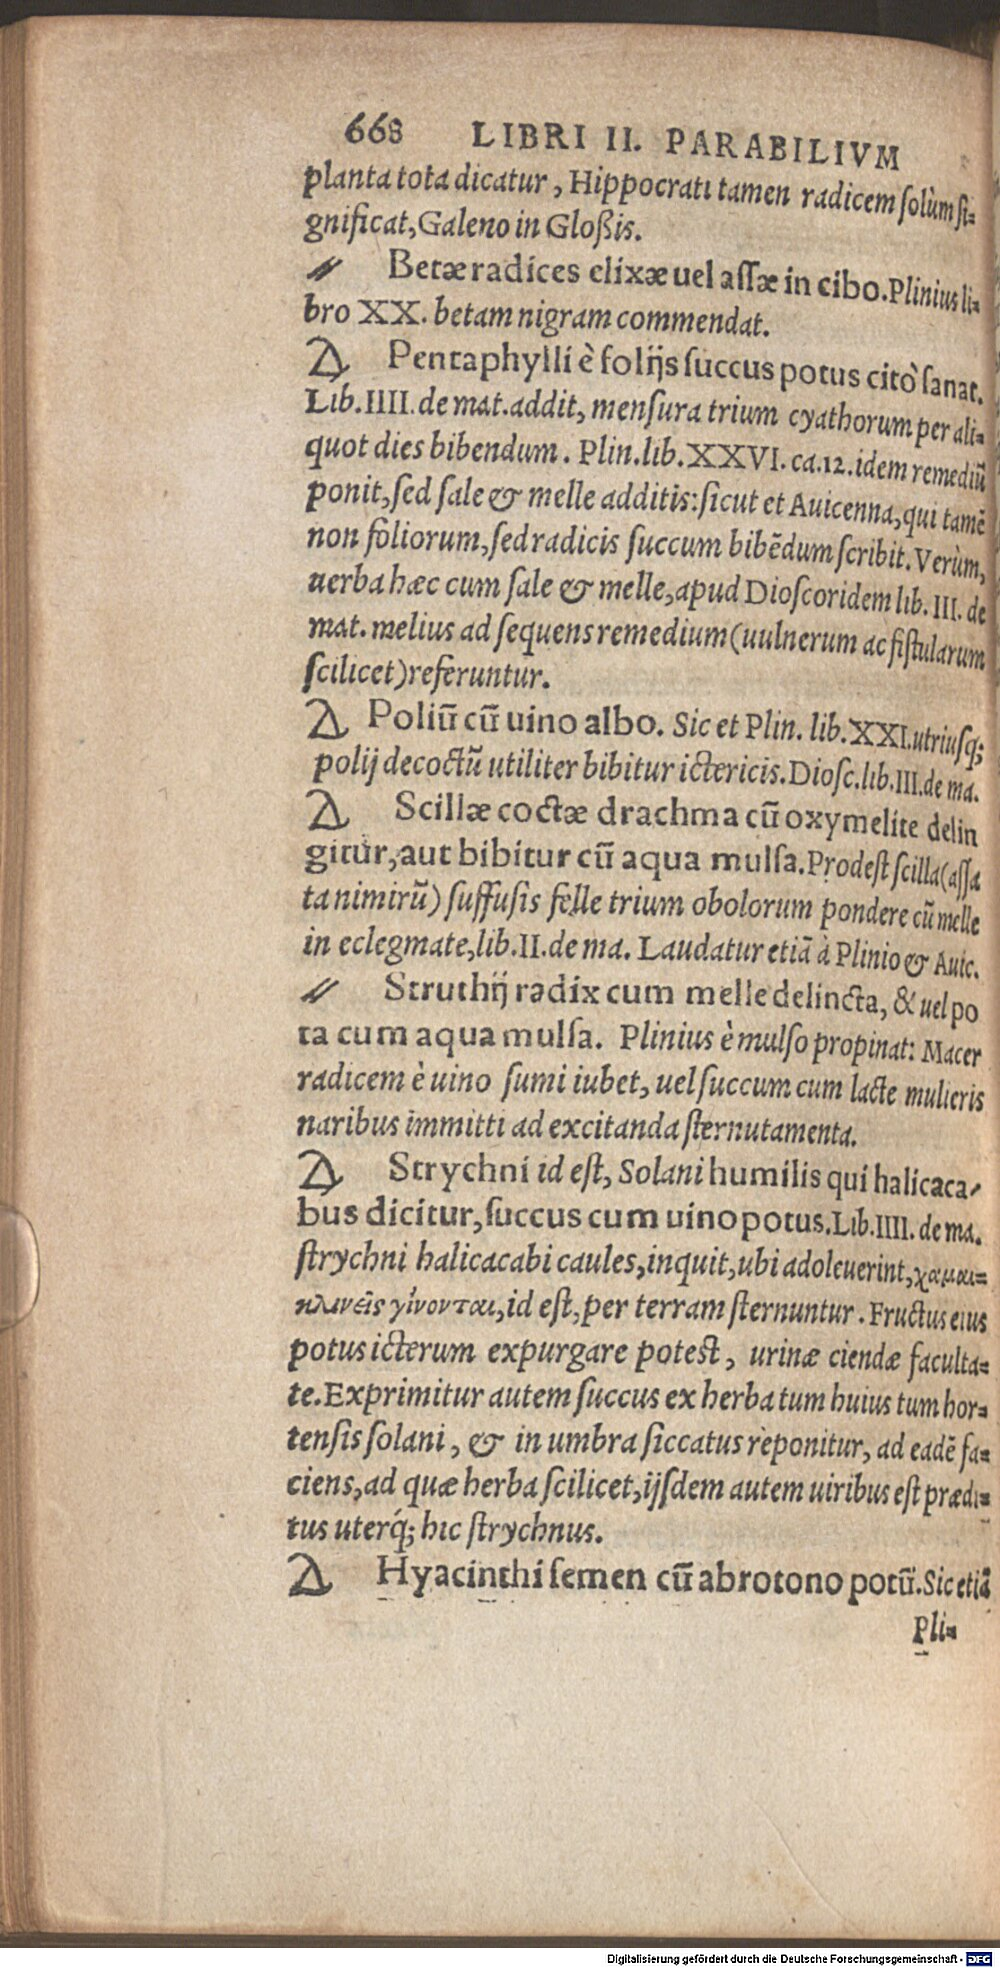 668 LIBRI II. PARABILIVM
planta tota dicatur, Hippocrati tamen radicem solùm si-
gnificat, Galeno in Gloßis.
〃 Betæ radices elixæ uel assæ in cibo. Plinius li-
bro XX. betam nigram commendat.
Δ Pentaphylli è folijs succus potus citò sanat.
Lib. IIII. de mat. addit, mensura trium cyathorum per ali-
quot dies bibendum. Plin. lib. XXVI. ca. 12. idem remediũ
ponit, sed sale & melle additis: sicut et Auicenna, qui tamẽ
non foliorum, sed radicis succum bibẽdum scribit. Verùm,
uerba hæc cum sale & melle, apud Dioscoridem lib. III. de
mat. melius ad sequens remedium (uulnerum ac fistularum
scilicet) referuntur.
Δ Poliũ cũ uino albo. Sic et Plin. lib. XXI. utriusq;
polij decoctũ utiliter bibitur ictericis. Diosc. lib. III. de ma.
Δ Scillæ coctæ drachma cũ oxymelite delin
gitur, aut bibitur cũ aqua mulsa. Prodest scilla (assa
ta nimirũ) suffusis felle trium obolorum pondere cũ melle
in eclegmate, lib. II. de ma. Laudatur etiã à Plinio & Auic.
〃 Struthij radix cum melle delincta, & uel po
ta cum aqua mulsa. Plinius è mulso propinat: Macer
radicem è uino sumi iubet, uel succum cum lacte mulieris
naribus immitti ad excitanda sternutamenta.
Δ Strychni id est, Solani humilis qui halicaca-
bus dicitur, succus cum uino potus. Lib. IIII. de ma.
strychni halicacabi caules, inquit, ubi adoleuerint, χαμαι-
κλινεῖς γίνονται, id est, per terram sternuntur. Fructus eius
potus icterum expurgare potest, urinæ ciendæ faculta-
te. Exprimitur autem succus ex herba tum huius tum hor-
tensis solani, & in umbra siccatus reponitur, ad eadẽ fa-
ciens, ad quæ herba scilicet, ijsdem autem uiribus est prædi-
tus uterq́; hic strychnus.
Δ Hyacinthi semen cũ abrotono potũ. Sic etiã
Pli-
Digitalisierung gefördert durch die Deutsche Forschungsgemeinschaft - DFG